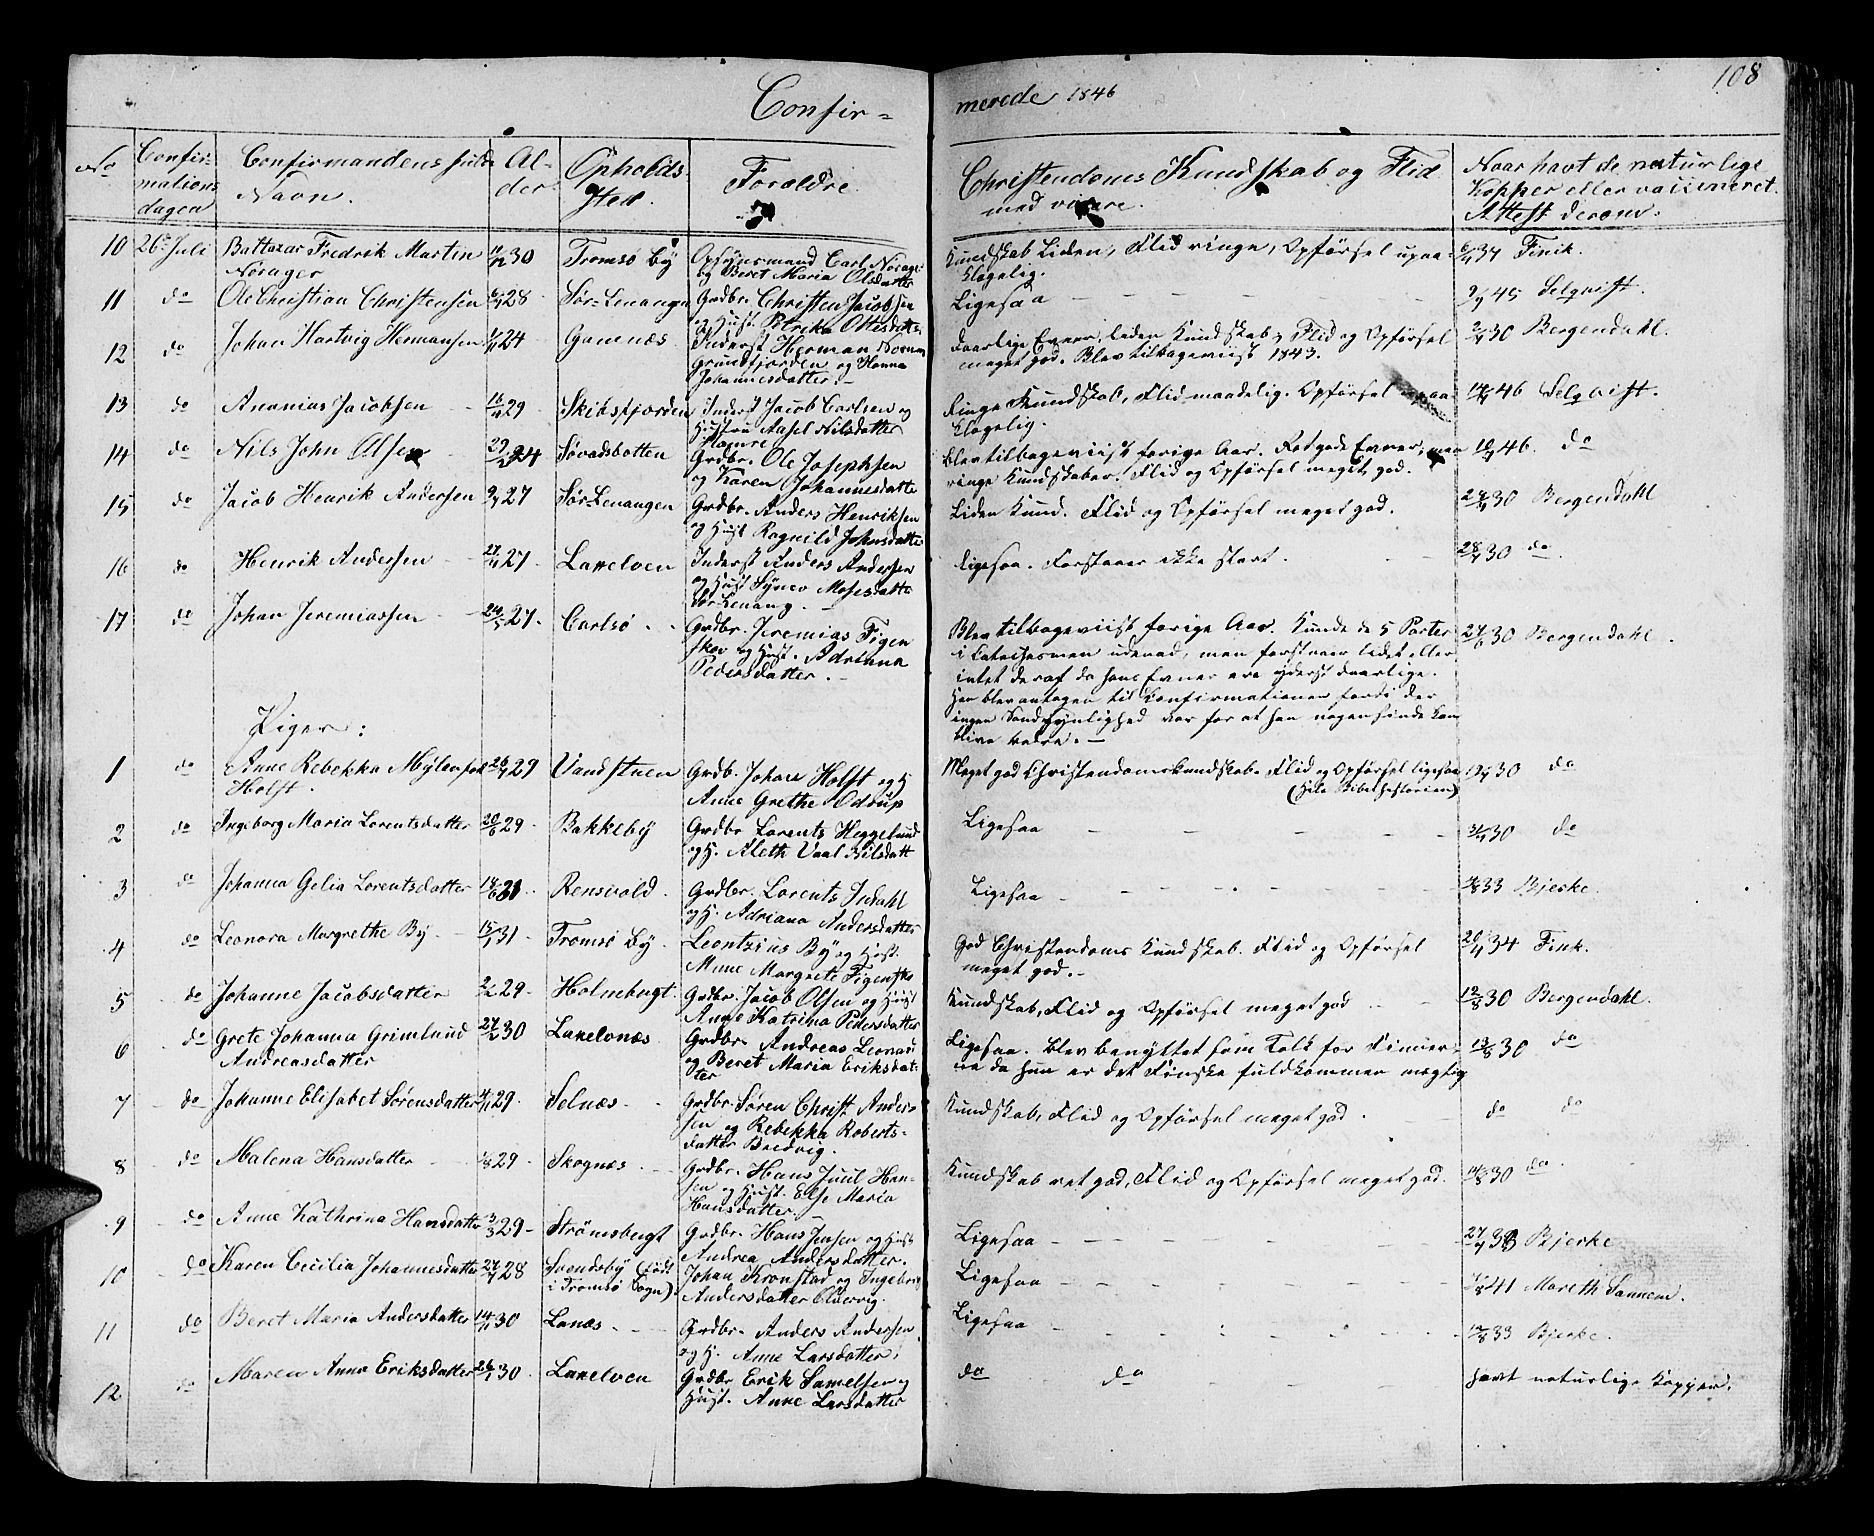 108
Confir-
merede 1846
No
Confir-
mations
dagen
Confirmandens fulde
Navn.
Al-
der
Opholds
Sted.
Forældre
Christendoms Kundskab og Flid
med videre.
Naar havt de naturlige
Kopper eller vaccineret.
Attest derom.
10 26de Juli Baltazar Fredrik Martin 30 Tromsø By Opsynsmand Carl Norager
Norager
og Beret Maria Olsdatter
Kundskab Liden, Flid ringe, Opførsel upaa-
klagelig.
34 Fink.
11 do Ole Christian Christensen 28 Sør-Lenangen Grdbr. Christen Jacobsen
og Hust. Petrika Ottisdatter
Ligesaa
9/9 45 Selqvist.
12 do Johan Hartvig Hermansen 24 Gamnæs Inderst Herman
Grundfjorden og Hanna
Johannesdatter.
daarlige Evner, liden Kundskab, Flid og Opførsel
meget god. Blev tilbageviist 1843.
30 Bergendahl.
13 do Ananias Jacobsen 29. Skibsfjorden Inderst Jacob Carlsen og
Hustru Aasel Nilsdatter
Ringe Kundskab, Flid maadelig. Opførsel upaa
klagelig.
46 Selqvist.
14 do Nils John Olsen 24 Søvadbotten
Grdbr. Ole Josephsen
og Karen Johannesdatter
Blev tilbageviist forige Aar. Ret gode Evner, men
ringe Kundskaber. Flid og Opførsel meget god.
46. do
15 do Jacob Henrik Andersen 27 Sør-Lenangen Grdbr. Anders Henriksen
og Hust Ragnild Johnsdatter
Liden Kund. Flid og Opførsel meget god.
30 Bergendahl
16 do Henrik Andersen 27 Laxelven Inderst Anders Andersen
og Hust Synev Mosesdatter
Sør Lenang.
Ligesaa. Forstaaer ikke stort.
28 30 do
17 do Johan Jeremiassen 27. Carlsø Grdbr. Jeremias Figen
skov og Hust. Adriana
Pedersdatter.
Blev tilbageviist forige Aar. Kunde de 5 Parter
i Catechismen udenad, men forstaaer lidet eller
intet deraf da hans Evner ere yderst daarlige.
Han blev antagen til Confirmationen fordi der
ingen Sandsynlighed var for at han nogensinde kan
blive bedre.
30 Bergendahl.
Piger:
1 do Anne Rebekka 29 Vandstuen Grdb. Johan Holst og H
Holst.
Anne Grethe Odrup
Meget god Christendomskundskab. Flid og Opførsel ligesaa
(hele Bibelhistorien)
30 do
2 do Ingeborg Maria Lorentsdatter 20/6 29 Bakkeby Grdbr Lorents Heggelund
og H. Aleth Vaal Nilsdatt
Ligesaa
30 do
3 do Johanna Gelia Lorentsdatter 31. Rensvold. Grdbr. Lorents Indahl
og H. Adriana Andersdatter
Ligesaa
33 Bjerke.
4 do Leonora Margrethe By 31. Tromsø By. Leontzius By og Hust.
Anne Margrete Figensko
God Christendoms Kundskab. Flid og Opførsel
meget god.
34 Fink.
5 do Johanne Jacobsdatter 29. Holmbugt. Grdbr. Jacob Olsen og Hust
Anne Katrina Pedersdatter
Kundskab, Flid og Opførsel meget god
12/8 30 Bergendahl.
6 do Grete Johanna Grimlund 30 Laxelvnæs Grdbr. Andreas
Andreasdatter
og Beret Maria Eriksdat-
ter
Ligesaa. Blev benyttet som Tolk for Finner-
ne da hun er det Finske fuldkommen mægtig
13/8 30 do
7 do Johanne Elisabet Sørensdatter 29. Selnæs Grdbr. Søren Christ. Ander-
sen og Rebekka Roberts-
datter Bredvig.
Kundskab, Flid og Opførsel meget god.
do do
8 do Malena Hansdatter 29 Skognæs Grdbr. Hans Juul Han-
sen og Hust. Else Maria
Hansdatter.
Kundskab ret god, Flid og Opførsel meget god.
14/8 30 do
9 do Anne Kathrina Hansdatter 3/3 29 Strømsbugt Grdbr. Hans Jensen og Hust
Andrea Andersdatter.
Ligesaa
33 Bjerke
10 do Karen Cecilia Johannesdatter 28 Svendsby (født
i Tromsø Sogn).
Johan Kronstad og Ingeborg
Andersdatter Oldervig.
Ligesaa
41 Mareth Sannem.
11 do Beret Maria Andersdatter 14/11 30 Lanæs Grdbr. Anders Andersen
og H. Anne Larsdatter
Ligesaa
33 Bjerke.
12 do Maren Anna Eriksdatter 30 Laxelven Grdbr Erik Samelsen og
Hust. Anne Larsdatter
do do
havt naturlige Kopper.